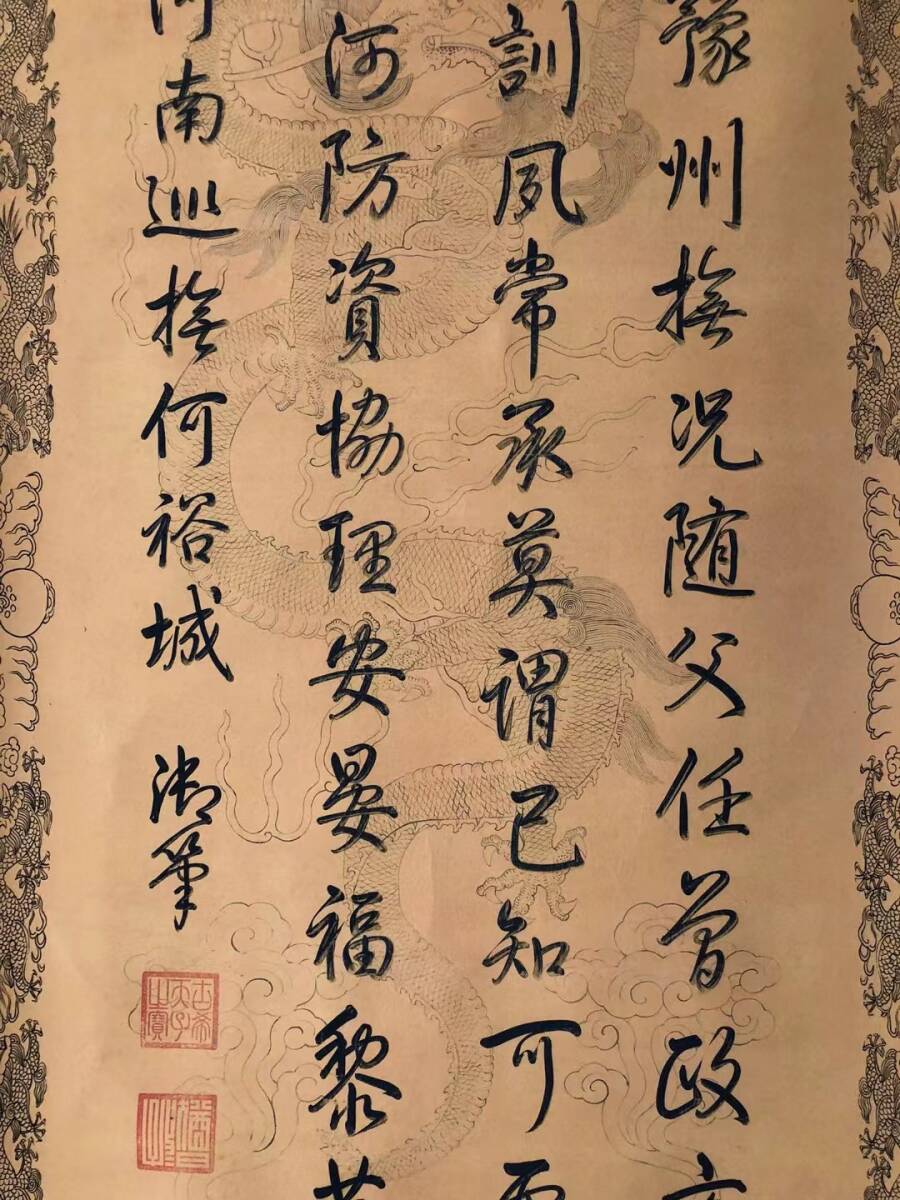 豫州撫況随父任曾政
訓夙常承莫謂已知可
河防資協理安晏福黎
河南巡撫何裕城 御筆
古希天子之寶
猶日孜孜